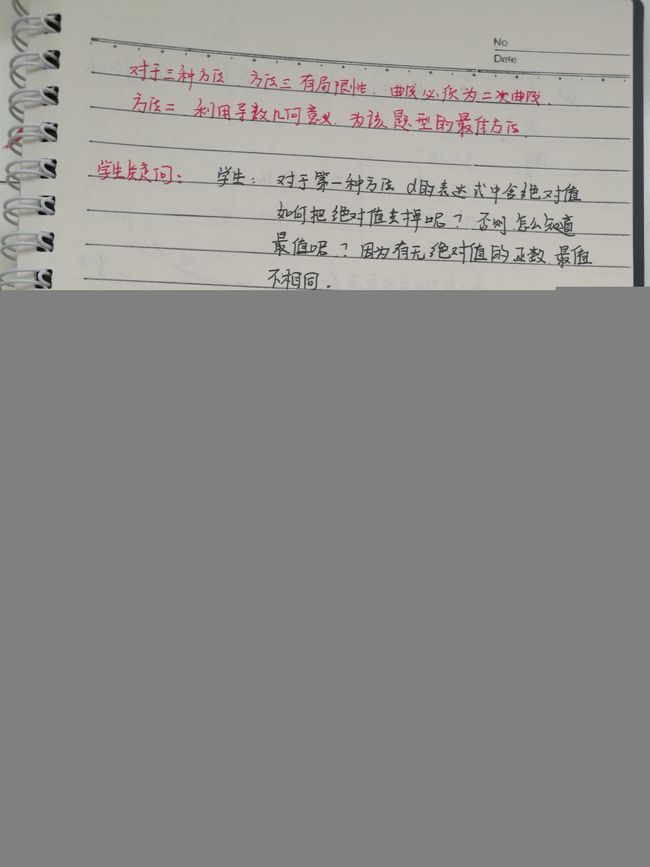 No
Date
对于三种方法 方法三有局限性. 曲线必须为二次曲线.
方法二 利用导数几何意义. 为该题型的最佳方法.
学生疑问: 学生: 对于第一种方法 d的表达式中含绝对值
如何把绝对值去掉呢? 否则怎么知道
最值呢? 因为有无绝对值的函数 最值
不相同.